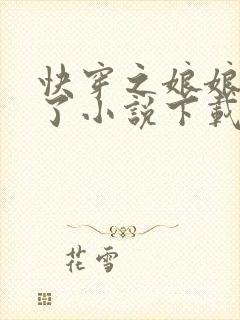 快穿之娘娘
了小説下載
花雪